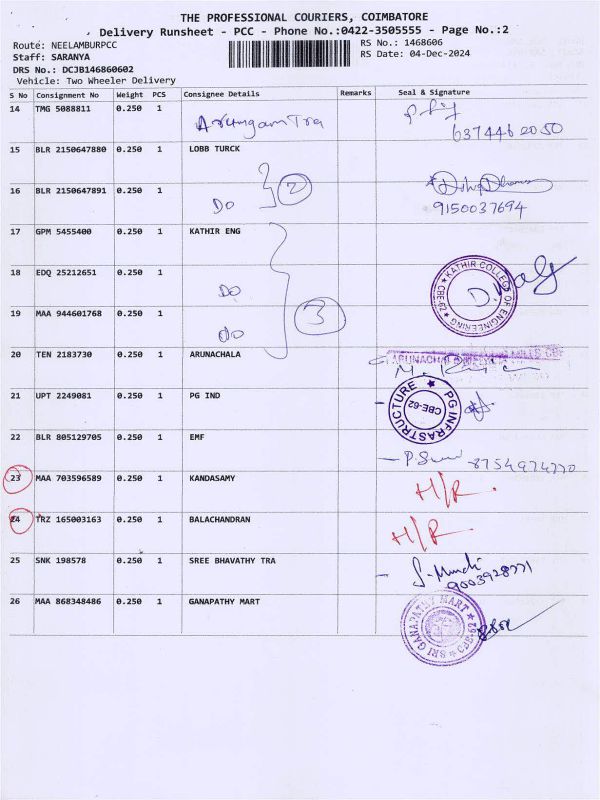 THE PROFESSIONAL COURIERS, COIMBATORE
Delivery Runsheet - PCC - Phone No.:0422-3505555 - Page No.:2
Route: NEELAMBURPCC
RS No.: 1468606
Staff: SARANYA
RS Date: 04-Dec-2024
DRS No.: DCJB146860602
Vehicle: Two Wheeler Delivery
S No Consignment No Weight PCS Consignee Details Remarks Seal & Signature
14 TMG 5088811 0.250 1 Arumugam Tra
637446 2050
15 BLR 2150647880 0.250 1 LOBB TURCK
16 BLR 2150647891 0.250 1 Do 2
9150037694
17 GPM 5455400 0.250 1 KATHIR ENG
18 EDQ 25212651 0.250 1 Do
KATHIR COLLEGE OF ENGINEERING CBE-62
19 MAA 944601768 0.250 1 Do 3
20 TEN 2183730 0.250 1 ARUNACHALA
21 UPT 2249081 0.250 1 PG IND
PG INFRASTRUCTURE CBE-62
22 BLR 805129705 0.250 1 EMF
8754974770
23 MAA 703596589 0.250 1 KANDASAMY H/R.
24 TRZ 165003163 0.250 1 BALACHANDRAN H/R.
25 SNK 198578 0.250 1 SREE BHAVATHY TRA
9003928771
26 MAA 868348486 0.250 1 GANAPATHY MART
SRI GANAPATHY MART CBE-62